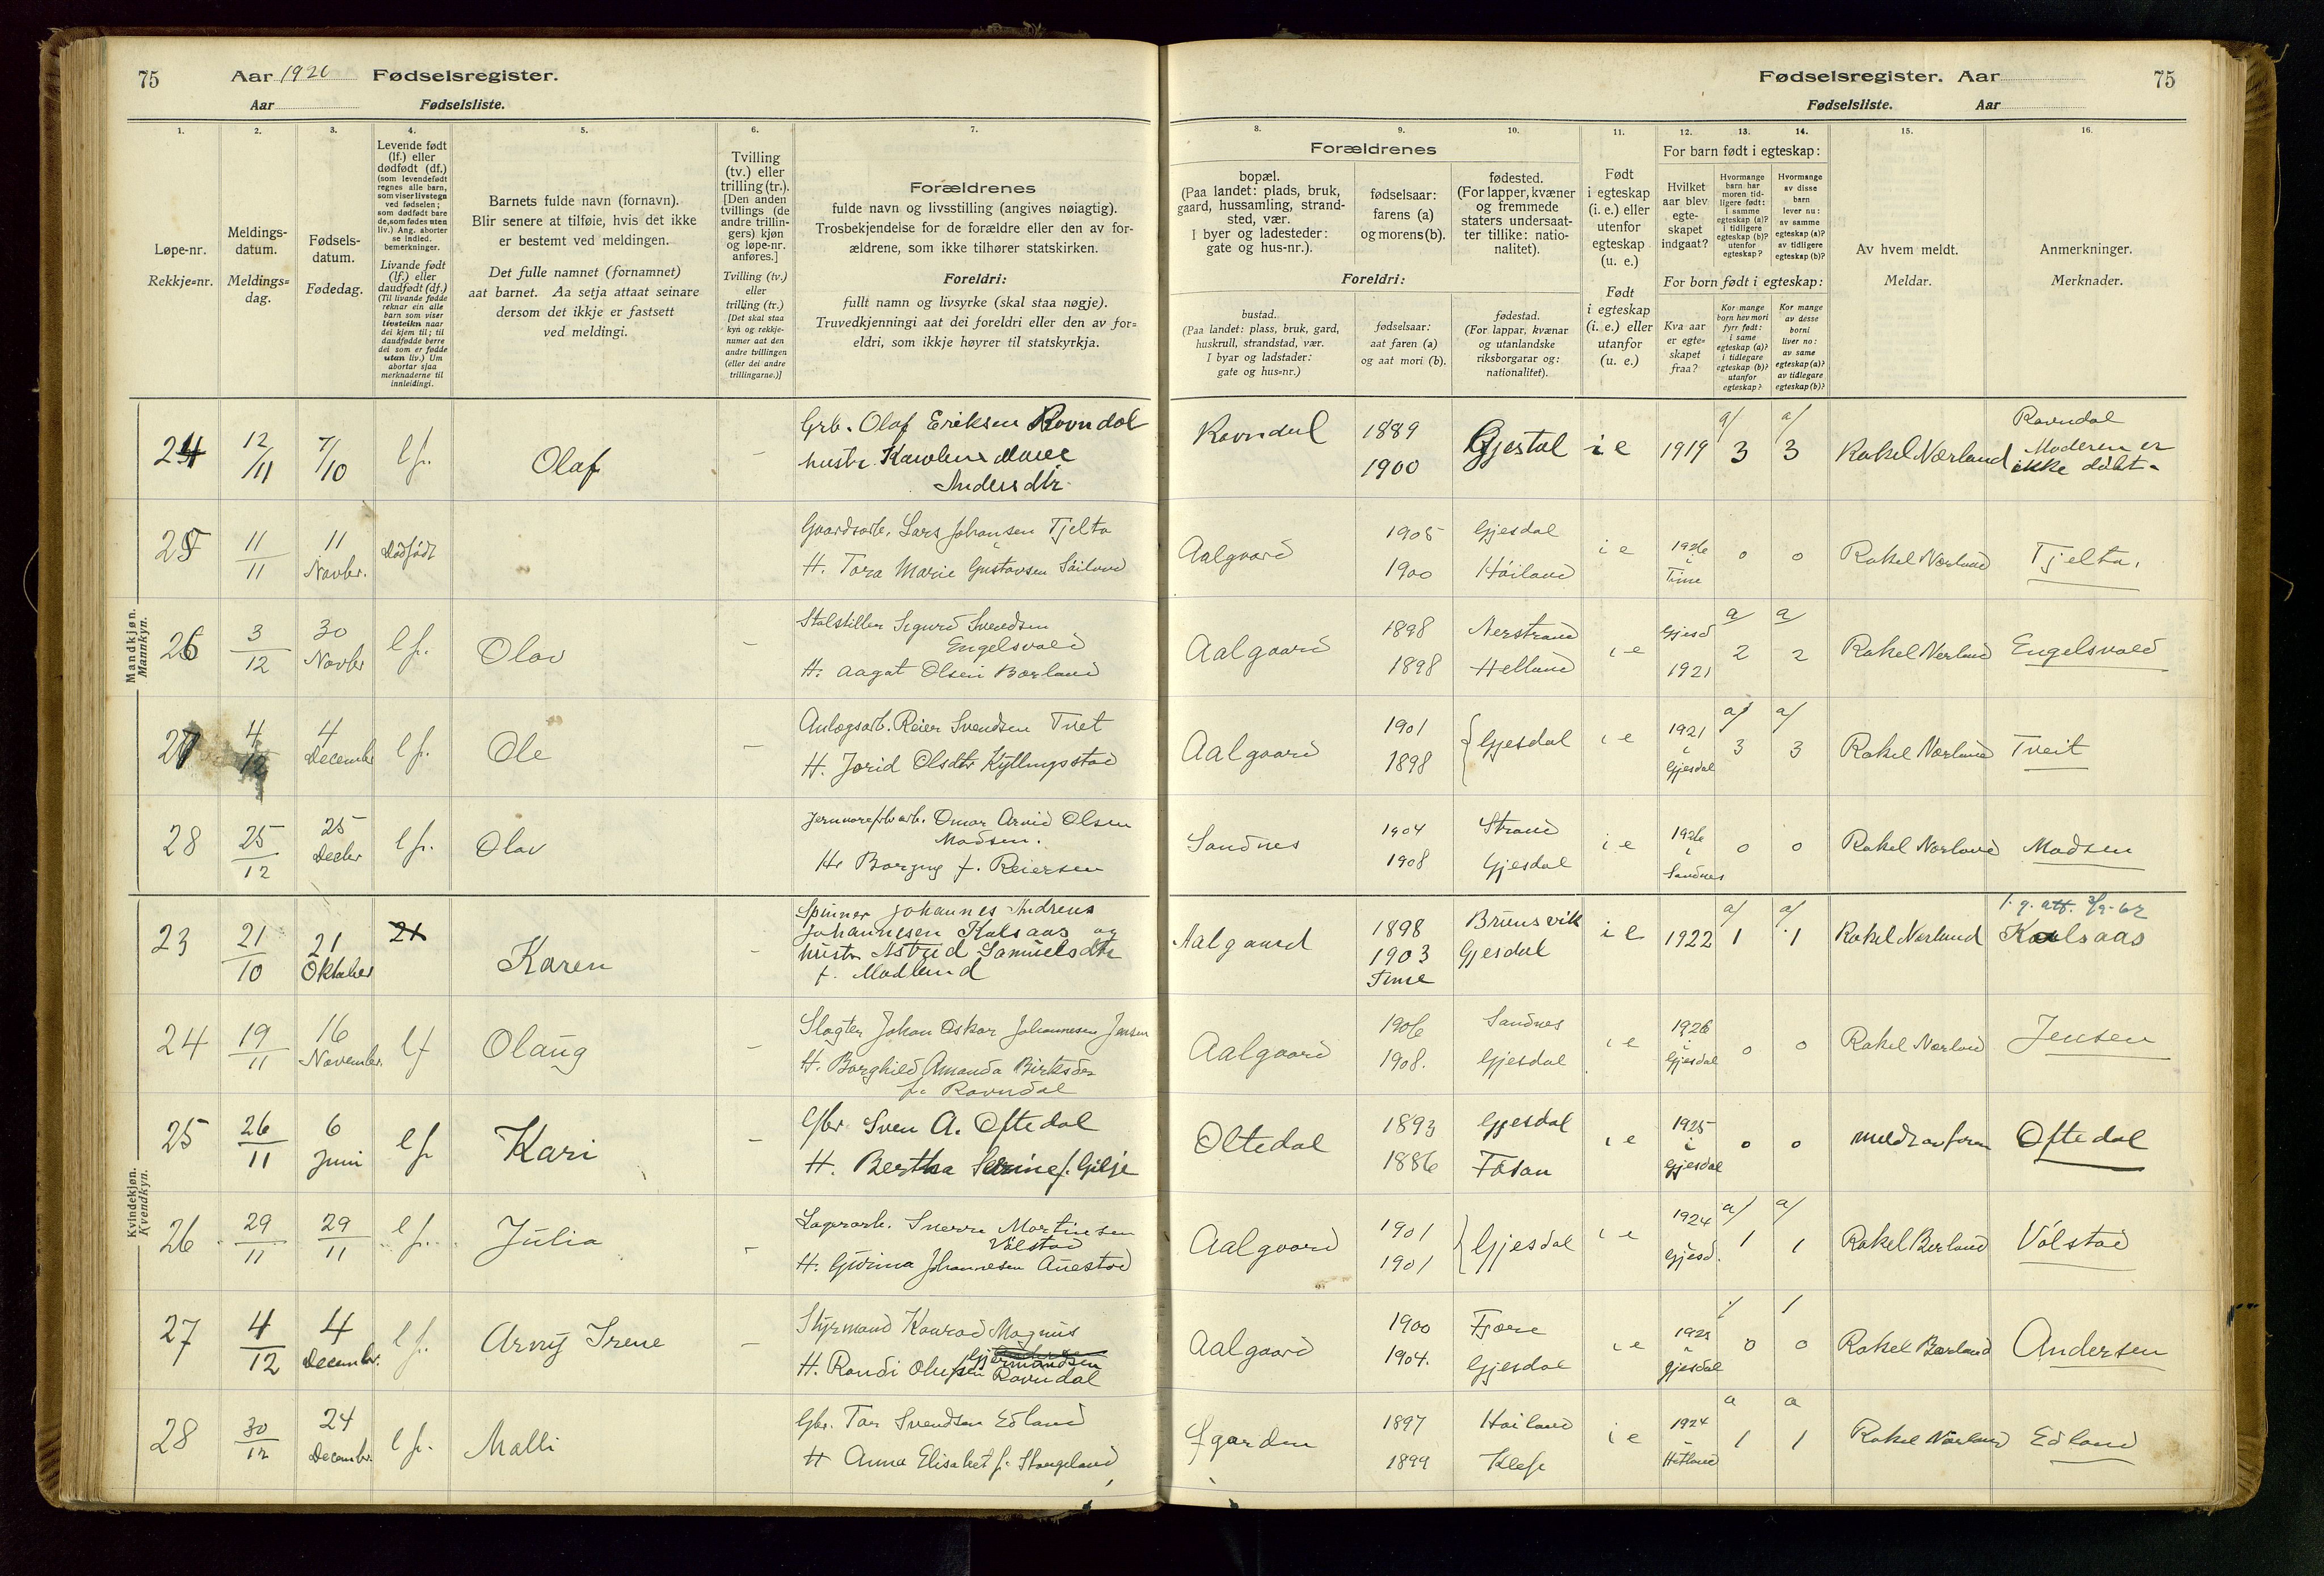 75 Aar 1926 Fødselsregister.
Aar Fødselsliste.
Fødselsregister. Aar 75
Fødselsliste. Aar
1. 2. 3. 4. 5. 6. 7. 8. 9. 10. 11. 12. 13. 14. 15. 16.
Løpe-nr.
Rekkje=nr.
Meldings-
datum.
Meldings=
dag.
Fødsels-
datum.
Fødedag.
Levende født
(lf.) eller
dødfødt (df.)
(som levendefødt
regnes alle barn,
som viser livstegn
ved fødselen;
som dødfødt bare
de, som fødes uten
liv.) Ang. aborter
se indled.
bemerkninger.
Livande født
(lf.) eller
daudfødt (df.)
(Til livande fødde
reknar ein alle
barn som viser
livsteikn naar
dei kjem til; til
daudfødde berre
dei som er fødde
utan liv.) Um
abortar sjaa
merknaderne til
innleidingi.
Barnets fulde navn (fornavn).
Blir senere at tilføie, hvis det ikke
er bestemt ved meldingen.
Det fulle namnet (fornamnet)
aat barnet. Aa setja attaat seinare
dersom det ikkje er fastsett
ved meldingi.
Tvilling
(tv.) eller
trilling (tr.).
[Den anden
tvillings (de
andre trillin-
gers) kjøn
og løpe-nr.
anføres.]
Tvilling (tv.)
eller
trilling (tr.)
[Det skal staa
kyn og rekkje-
numer aat den
andre tvillingen
(eller dei andre
trillingarne.)]
Forældrenes
fulde navn og livsstilling (angives nøiagtig).
Trosbekjendelse for de forældre eller den av for-
ældrene, som ikke tilhører statskirken.
Foreldri:
fullt namn og livsyrke (skal staa nøgje).
Truvedkjenningi aat dei foreldri eller den av for=
eldri, som ikkje høyrer til statskyrkja.
Forældrenes
bopæl.
(Paa landet: plads, bruk,
gaard, hussamling, strand-
sted, vær.
I byer og ladesteder:
gate og hus-nr.).
fødselsaar:
farens (a)
og morens (b).
fødested.
(For lapper, kvæner
og fremmede
staters undersaat-
ter tillike: natio-
nalitet).
Foreldri:
bustad.
(Paa landet: plass, bruk, gard,
huskrull, strandstad, vær.
I byar og ladstader:
gate og hus-nr.)
fødselsaar:
aat faren (a)
og aat mori (b).
fødestad.
(For lappar, kvænar
og utanlandske
riksborgarar og:
nationalitet).
Født
i egteskap
(i. e.) eller
utenfor
egteskap
(u. e.)
Født
i egteskap
(i. e.) eller
utanfor
(u. e.)
For barn født i egteskap:
Hvilket
aar blev
egte-
skapet
indgaat?
Hvormange
barn har
moren tid-
ligere født:
i samme
egteskap (a)?
i tidligere
egteskap (b)?
utenfor
egteskap?
Hvormange
av disse
barn
lever nu:
av samme
egteskap (a)?
av tidligere
egteskap (b)?
For born født i egteskap:
Kva aar
er egte-
skapet
fraa?
Kor mange
born hev mori
fyrr født:
i same
egteskap (a)?
i tidlegare
egteskap (b)?
utanfor
egteskap?
Kor mange
av desse
borni
liver no:
av same
egteskap (a)?
av tidlegare
egteskap (b)?
Av hvem meldt.
Meldar.
Anmerkninger.
Merknader.
Mandkjøn.
Mannkyn.
24 12/11 7/10 lf. Olaf – Grb. Olaf Eriksen Ravndal
hustr. Karoline Marie
Andersdtr.
Ravndal 1889 1900 Gjestal i e 1919 a/ 3 a/ 3 Rakel Nærland Ravndal
Moderen er
ikke døbt.
25 11/11 11 Novbr. Dødfødt Gaardsarb. Lars Johansen Tjelta
H. Tora Marie Gustavsen Høiland
Aalgaard 1905 1900 Gjesdal Høiland i e 1926 i Time 0 0 Rakel Nærland Tjelta.
26 3/12 30 Novbr lf. Olav – Stolstiller Sigurd Svendsen
Engelsvold
H. Aagot Olsen Børland
Aalgaard 1898 1898 Nerstrand Helland i e Gjesd 1921 a/ 2 a/ 2 Rakel Nærland Engelsvold
27 4/12 4 December lf. Ole – Anlægsarb. Reier Svendsen Tveit
H. Jorid Olsdtr Kyllingstad
Aalgaard 1901 1898 Gjesdal i e 1921 i Gjesdal a/ 3 a/ 3 Rakel Nærland Tveit
28 25/12 25 Decbr lf. Olav Jernvarefbr arb. Omar Arvid Olsen
Madsen.
H. Borgny f. Reiersen
Sandnes 1904 1908 Strand Gjesdal i e 1926 i Sandnes 0 0 Rakel Nærland Madsen
Kvindekjøn.
Kvendkyn.
23 21/10 21 Oktober 21 Karen – Spinner Johannes Andreas
Johannesen Kolsaas og
hustr Astrid Samuelsdtr
f. Madland
Aalgaard 1898 1903 Time Brunsvik Gjesdal i e 1922 a/ 1 a/ 1 Rakel Nærland Kolsaas
24 19/11 16 November lf Olaug – Slagter Johan Oskar Johannesen Jensen
H. Borghild Amanda
f. Ravndal
Aalgaard 1906 1908. Sandnes Gjesdal i e 1926 i Gjesdal 0 0 Rakel Nærland Jensen
25 26/11 6 Juni lf Kari – Gbr. Sven A. Oftedal
H. Bertha Serine f. Gilje
Oltedal 1893 1886 Gjesdal Fosan i e 1925 i Gjesdal 0 0 meldt av faren Oftedal
26 29/11 29/11 lf. Julia – Lagerarb. Sverre Martinsen
Vølstad
H. Gurina Johannesen Auestad
Aalgaard 1901 1901 Gjesdal i e 1924 Gjesd. a/ 1 a/ 1 Rakel Børland Vølstad
27 4/12 4 December. lf. Arny Irene – Styrmand Konrad Magnus
H. Randi Olufsen Ravndal
Aalgaard 1900 1904. Fjære Gjesdal i e Gjesdal 0 0 Rakel Børland Andersen
28 30/12 24 December. lf. Malli Gbr. Tor Svendsen Edland
H Anna Elisabet f. Stangeland
1897 1899 Høiland Klep i e 1924 Hetland a 1 a 1 Rakel Nærland Edland